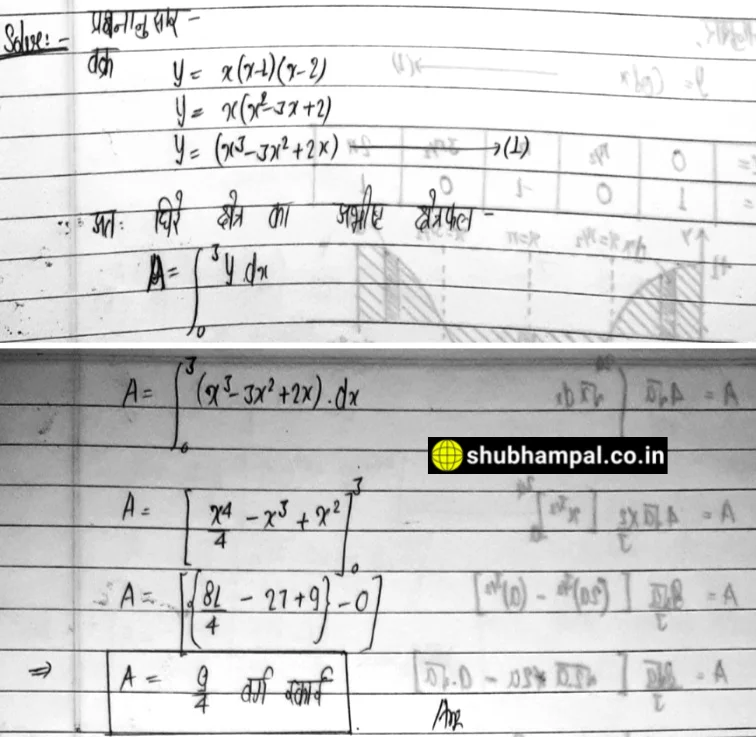 Solve:- प्रश्नानुसार -
वक्र y = x(x-1)(x-2)
y = x(x²-3x+2)
y = (x³-3x²+2x) → (1)
∴ अतः घिरे क्षेत्र का अभीष्ट क्षेत्रफल -
A = ∫₀³ y dx
A = ∫₀³ (x³-3x²+2x).dx
shubhampal.co.in
A = [x⁴/4 - x³ + x²]₀³
A = [{81/4 - 27+9} - 0]
⇒ A = 9/4 वर्ग इकाई
Ans